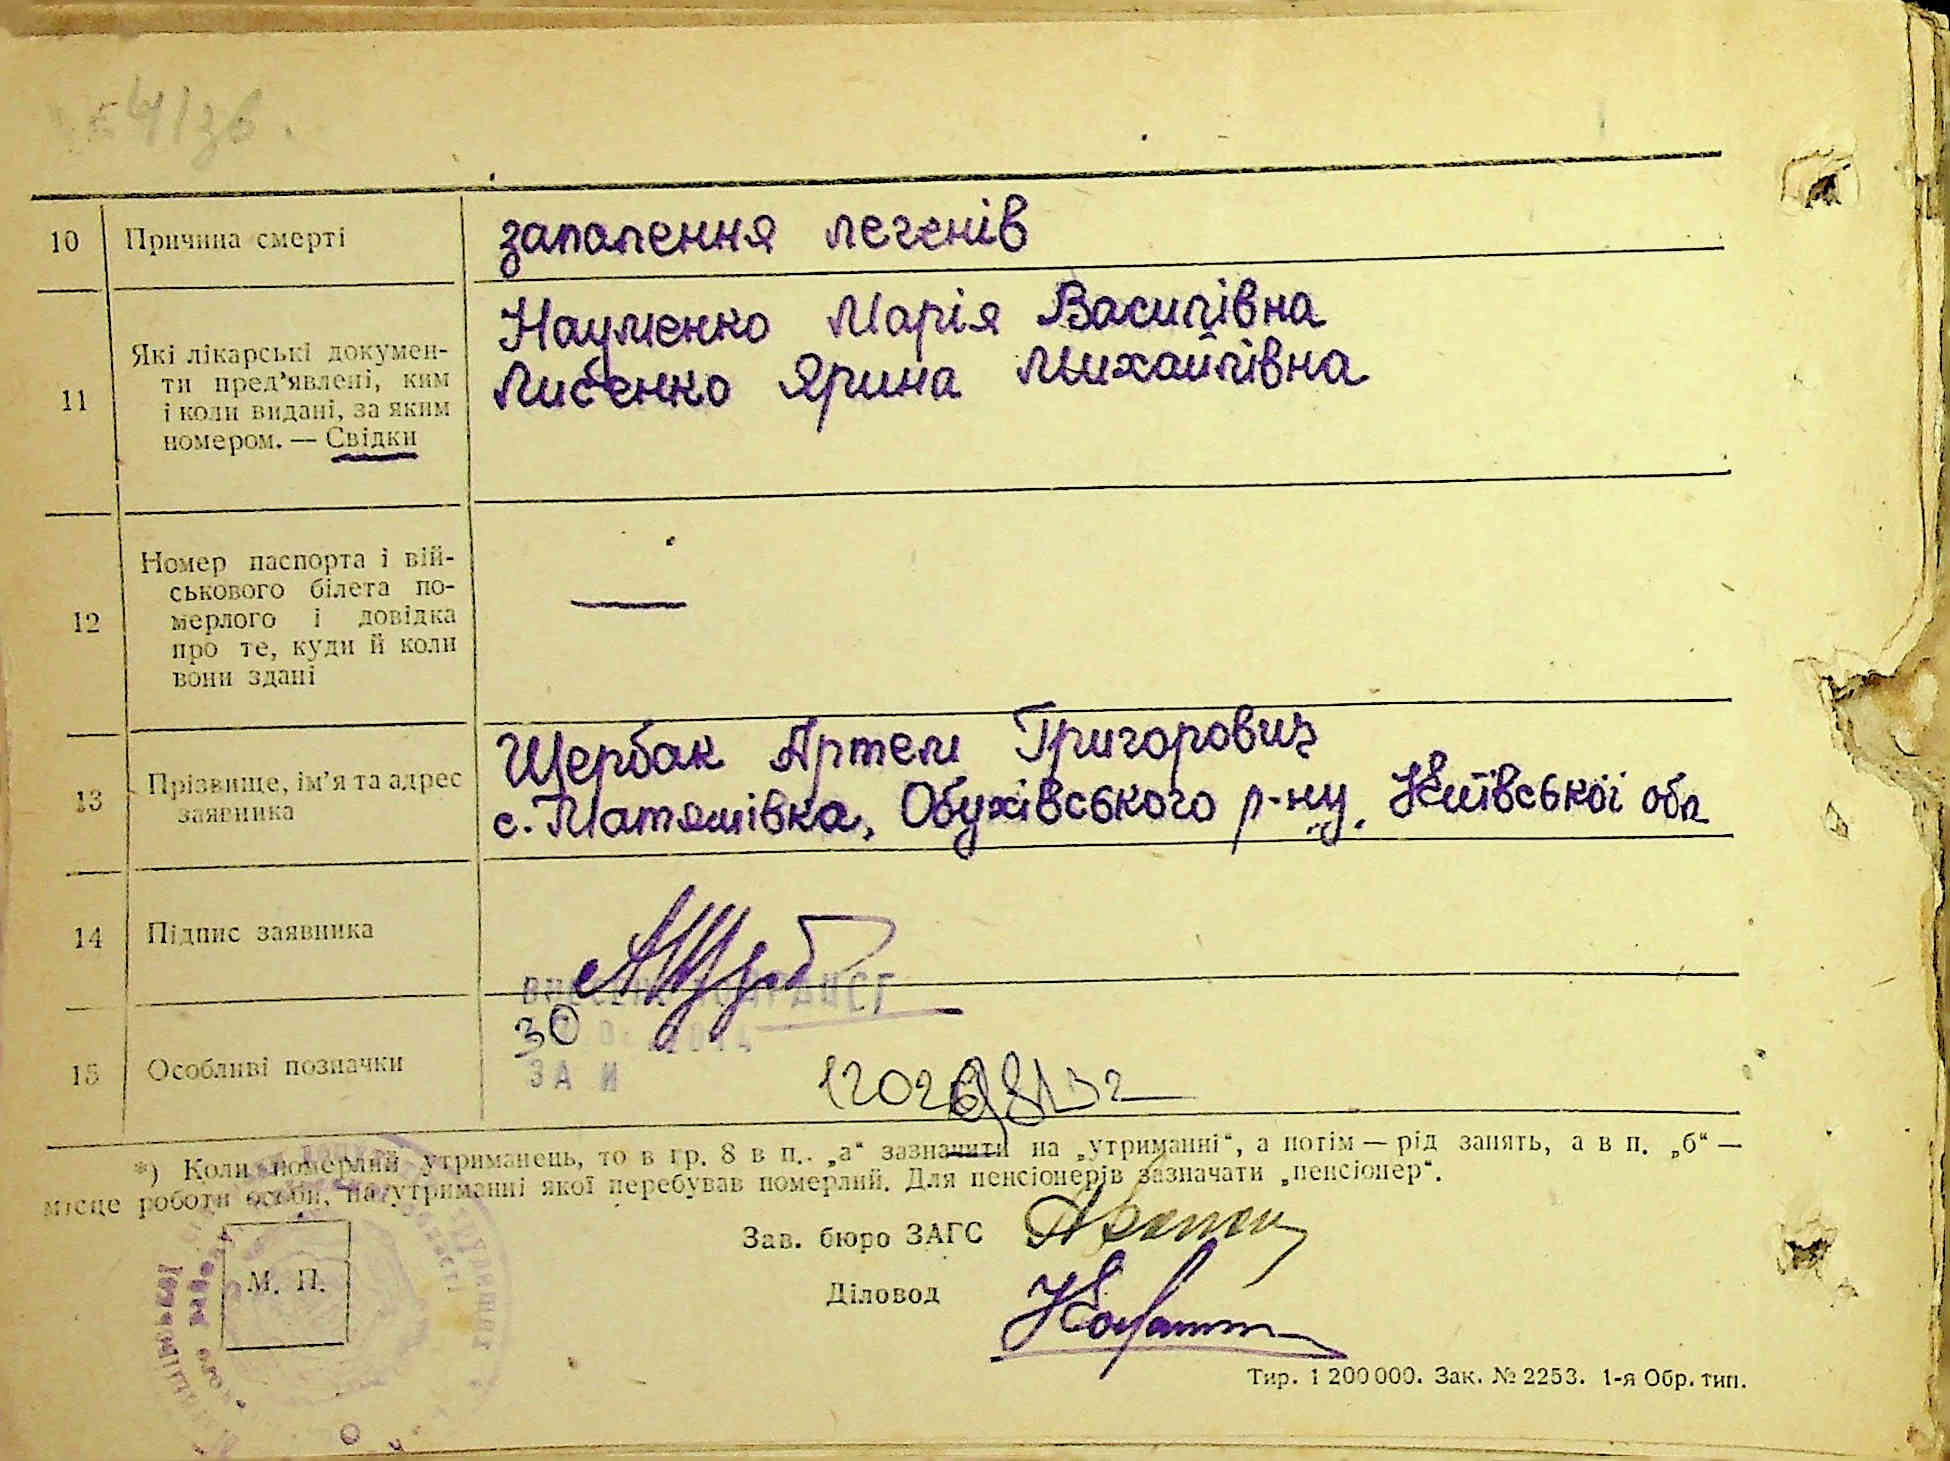 4/зв.
10 Причина смерті запалення легенів
11 Які лікарські докумен-
ти пред’явлені, ким
і коли видані, за яким
номером. — Свідки
Науменко Марія Василівна
Лисенко Ярина Михайлівна
12 Номер паспорта і вій-
ськового білета по-
мерлого і довідка
про те, куди й коли
вони здані
—
13 Прізвище, ім’я та адрес
заявника
Щербак Артем Григорович
с. Матяшівка, Обухівського р-ну, Київської обл
14 Підпис заявника
30
ЗА И
15 Особливі позначки
*) Коли померлий утриманець, то в гр. 8 в п. „а“ зазначити на „утриманні“, а потім — рід занять, а в п. „б“ —
місце роботи особи, на утриманні якої перебував померлий. Для пенсіонерів зазначати „пенсіонер“.
Зав. бюро ЗАГС
М. П.
Діловод
Тир. 1 200 000. Зак. № 2253. 1-я Обр. тип.